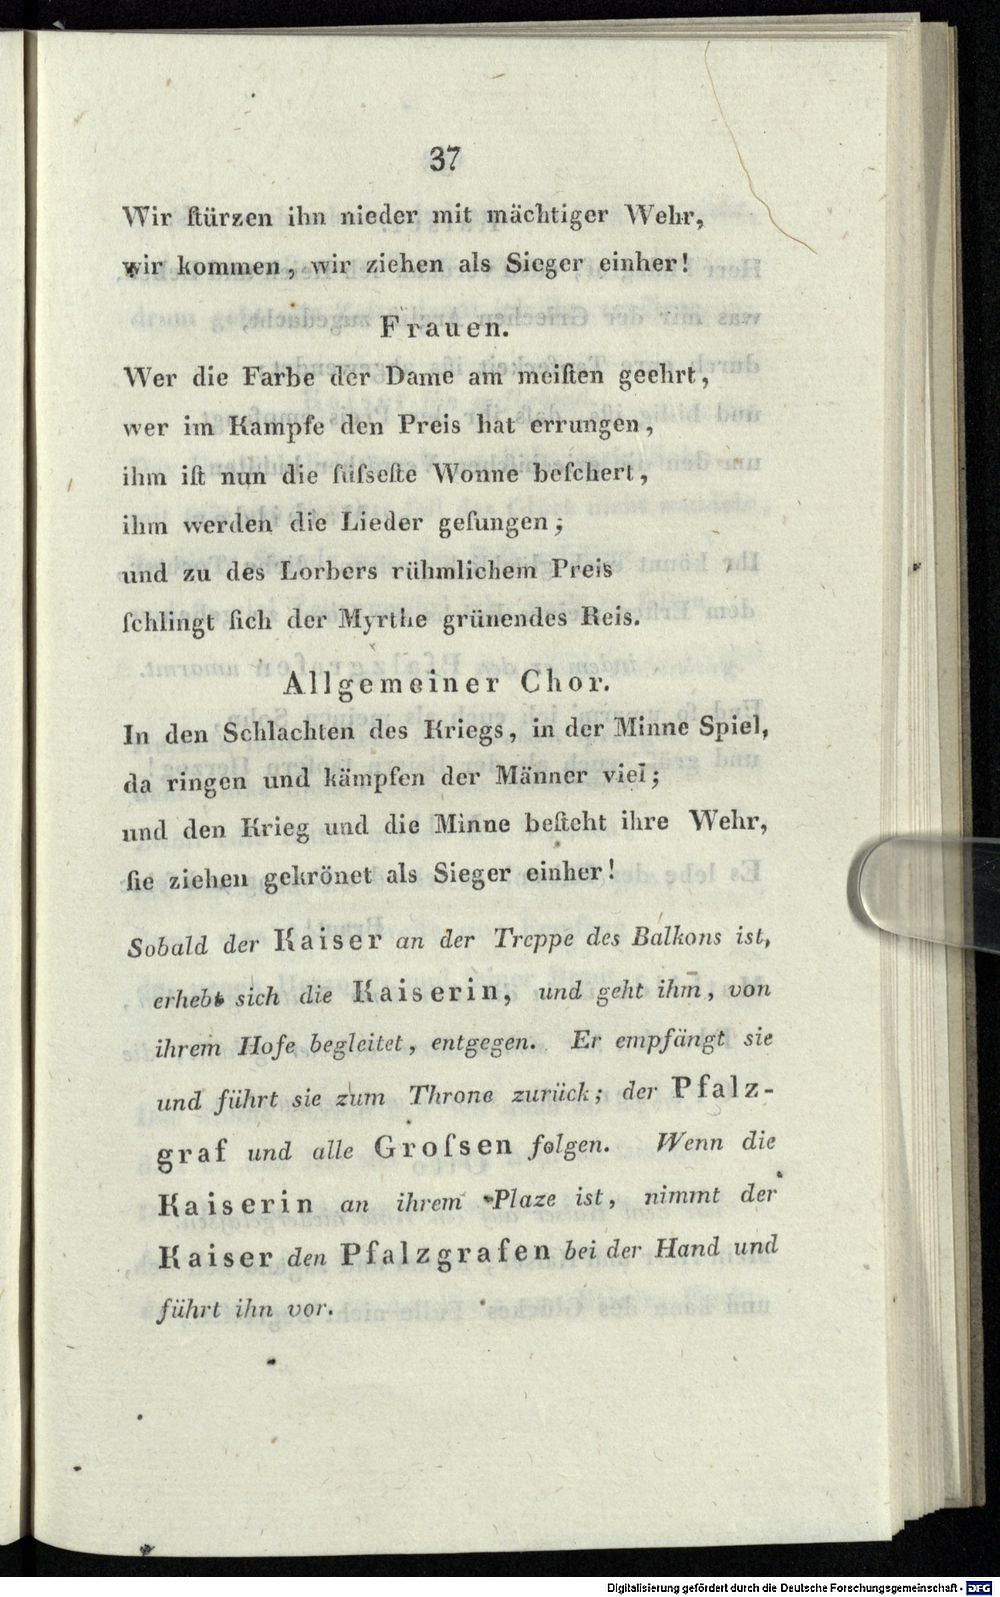 37
Wir ſtürzen ihn nieder mit mächtiger Wehr,
wir kommen, wir ziehen als Sieger einher!
Frauen.
Wer die Farbe der Dame am meiſten geehrt,
wer im Kampfe den Preis hat errungen,
ihm iſt nun die ſüſseſte Wonne beſchert,
ihm werden die Lieder geſungen;
und zu des Lorbers rühmlichem Preis
ſchlingt ſich der Myrthe grünendes Reis.
Allgemeiner Chor.
In den Schlachten des Kriegs, in der Minne Spiel,
da ringen und kämpfen der Männer viel;
und den Krieg und die Minne beſteht ihre Wehr,
ſie ziehen gekrönet als Sieger einher!
Sobald der Kaiser an der Treppe des Balkons ist,
erhebt sich die Kaiserin, und geht ihm, von
ihrem Hofe begleitet, entgegen. Er empfängt sie
und führt sie zum Throne zurück; der Pfalz-
graf und alle Groſsen folgen. Wenn die
Kaiserin an ihrem Plaze ist, nimmt der
Kaiser den Pfalzgrafen bei der Hand und
führt ihn vor.
Digitalisierung gefördert durch die Deutsche Forschungsgemeinschaft - DFG